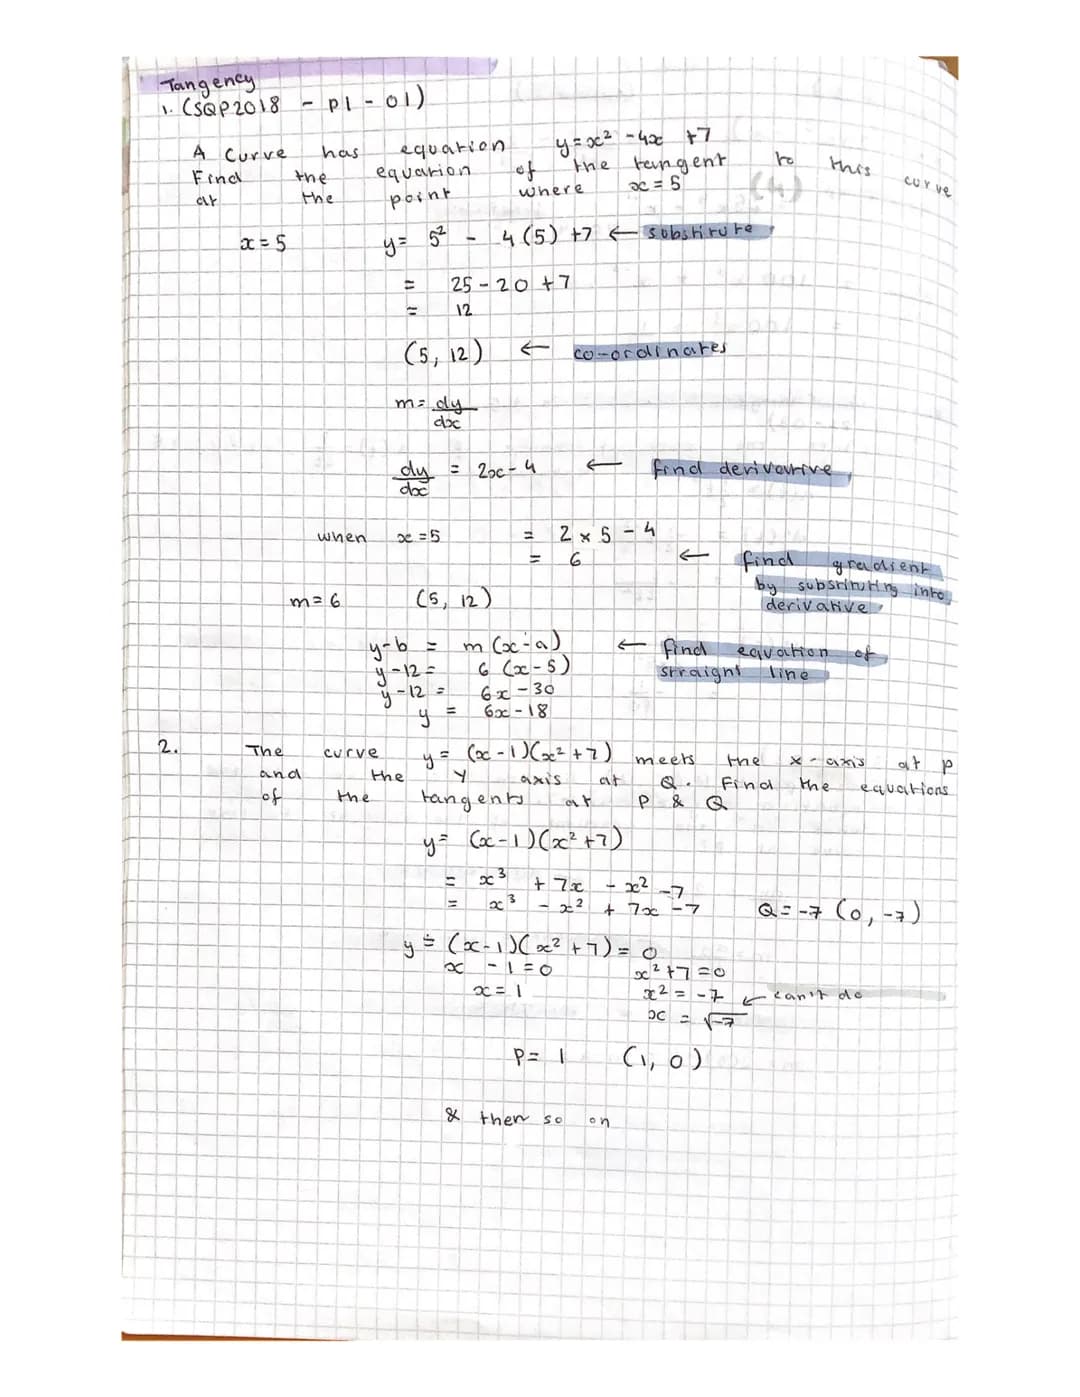 Tangency
1. (SQP2018 - P1 - 01)
A Curve has equation y=x² -4x +7
Find the equation of the tangent to this curve
at the point where x=5 (4)
x=5 y= 5² - 4(5) +7 ← substitute
= 25-20+7
= 12
(5, 12) ← co-ordinates
m= dy/dx
dy/dx = 2x-4 ← find derivative
when x=5 = 2 x 5 - 4
= 6 ← find gradient
by substituting into
derivative
m=6 (5, 12)
y-b = m(x-a) ← find equation of
y-12 = 6 (x-5) straight line
y-12 = 6x-30
y = 6x-18
2. The curve y= (x-1)(x²+7) meets the x-axis at P
and the Y axis at Q. Find the equations
of the tangents at P & Q
y= (x-1)(x²+7)
= x³ + 7x - x² -7
= x³ - x² + 7x -7 Q=-7 (0, -7)
y = (x-1)(x²+7) = 0
x -1=0 x²+7=0
x=1 x² = -7 ← can't do
x = √-7
P= 1 (1, 0)
& then so on